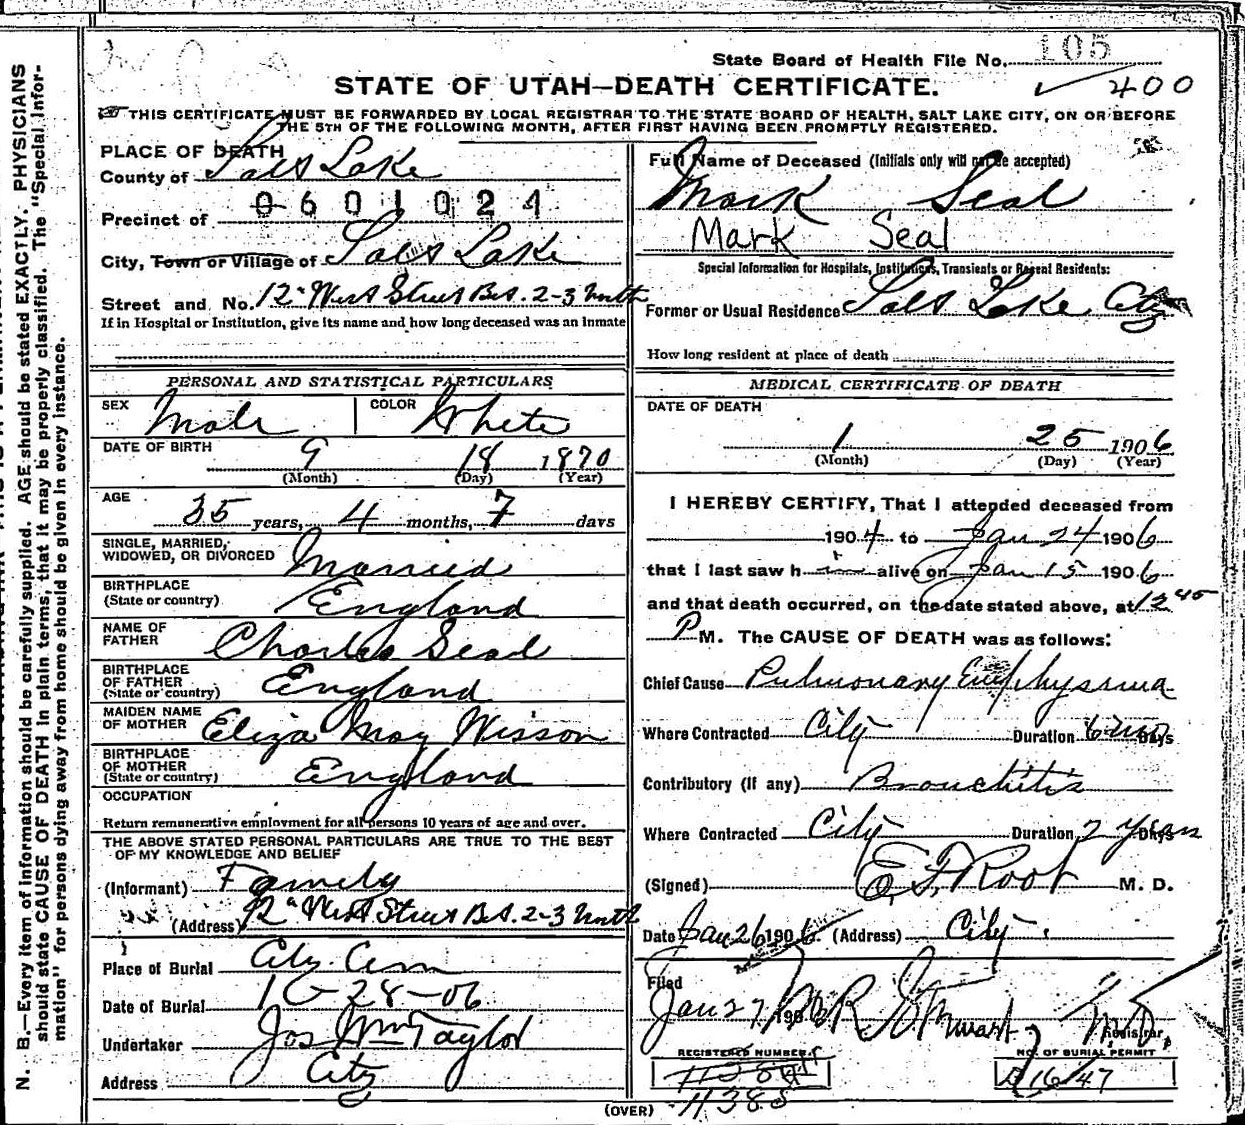 State Board of Health File No. 105
STATE OF UTAH—DEATH CERTIFICATE.
400
THIS CERTIFICATE MUST BE FORWARDED BY LOCAL REGISTRAR TO THE STATE BOARD OF HEALTH, SALT LAKE CITY, ON OR BEFORE
THE 5TH OF THE FOLLOWING MONTH, AFTER FIRST HAVING BEEN PROMPTLY REGISTERED.
N. B.—Every item of information should be carefully supplied. AGE should be stated EXACTLY. PHYSICIANS
should state CAUSE OF DEATH in plain terms, that it may be properly classified. The "Special Infor-
mation" for persons dying away from home should be given in every instance.
PLACE OF DEATH
County of Salt Lake
Precinct of 0601024
City, Town or Village of Salt Lake
Street and No. 12" West Street Bet. 2-3 North
If in Hospital or Institution, give its name and how long deceased was an inmate
Full Name of Deceased (Initials only will not be accepted)
Mark Seal
Mark Seal
Special Information for Hospitals, Institutions, Transients or Recent Residents:
Former or Usual Residence Salt Lake City
How long resident at place of death
PERSONAL AND STATISTICAL PARTICULARS
SEX Male COLOR White
DATE OF BIRTH 9 18 1870
(Month) (Day) (Year)
AGE 35 years, 4 months, 7 days
SINGLE, MARRIED,
WIDOWED, OR DIVORCED Married
BIRTHPLACE
(State or country) England
NAME OF
FATHER Charles Seal
BIRTHPLACE
OF FATHER
(State or country) England
MAIDEN NAME
OF MOTHER Eliza May Wisson
BIRTHPLACE
OF MOTHER
(State or country) England
OCCUPATION
Return remunerative employment for all persons 10 years of age and over.
THE ABOVE STATED PERSONAL PARTICULARS ARE TRUE TO THE BEST
OF MY KNOWLEDGE AND BELIEF
(Informant) Family
(Address) 12" West Street Bet. 2-3 North
Place of Burial City Cem
Date of Burial 1-28-06
Undertaker Jos Wm Taylor
Address City
MEDICAL CERTIFICATE OF DEATH
DATE OF DEATH
1 25 1906
(Month) (Day) (Year)
I HEREBY CERTIFY, That I attended deceased from
1904 to Jan 24 1906
that I last saw him alive on Jan 15 1906
and that death occurred, on the date stated above, at 12 45
P M. The CAUSE OF DEATH was as follows:
Chief Cause Pulmonary Emphysema
Where Contracted City Duration 6 mo Days
Contributory (if any) Bronchitis
Where Contracted City Duration 2 years Days
(Signed) E. F. Root M. D.
Date Jan 26 1906. (Address) City.
Filed
Jan 27, 1906 Stewart M.D.
Registrar
REGISTERED NUMBER
NO. OF BURIAL PERMIT
D 16147
11385
(OVER)